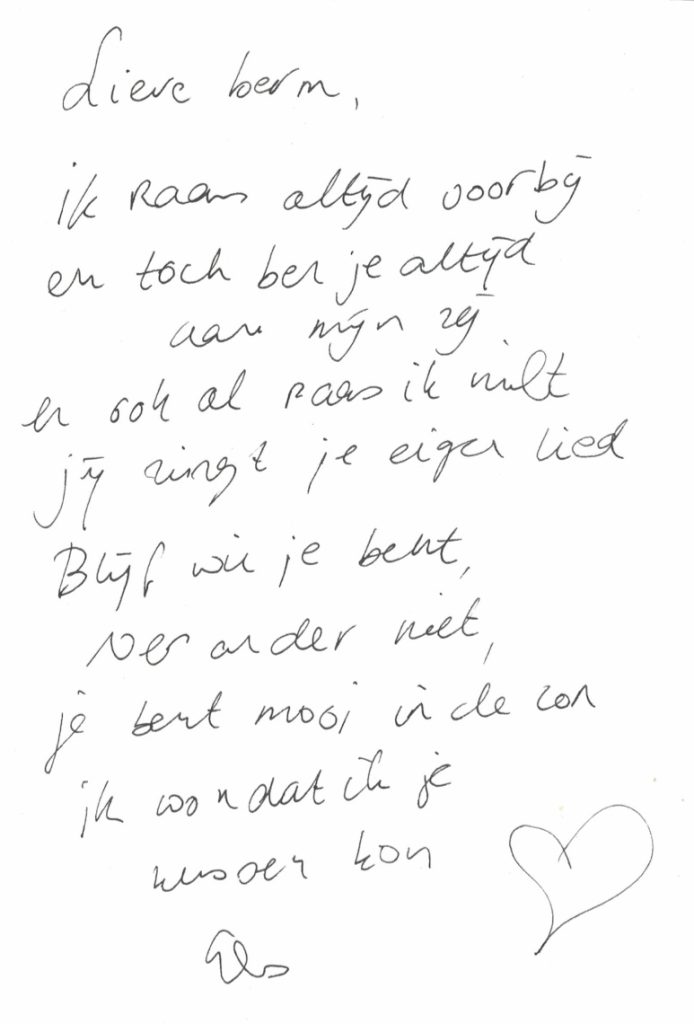 Lieve berm,
ik raas altijd voorbij
en toch ben je altijd
aan mijn zij
en ook al raas ik
jij zingt je eigen lied
Blijf wie je bent,
verander niet,
je bent mooi in de zon
ik wou dat ik je
kussen kon
Els